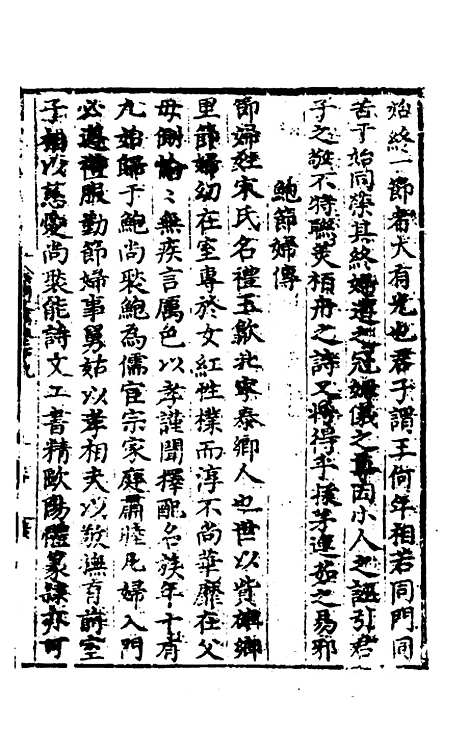 始終一節者大有光也君子謂王何年相若同門同
苦于始同榮其終婦道之冠姆儀之直因小人之誣引君
子之敬不特聯美栢舟之詩又將得乎拔茅連茹之易邪
鮑節婦傳
節婦姓宋氏名禮玉歙北寧泰鄉人也世以貲雄鄉
里節婦幼在室專於女紅性樸而淳不尚華靡在父
母側愉愉無疾言厲色以孝謹聞擇配名族年十有
九始歸于鮑尚褧鮑為儒宦宗家庭肅睦凡婦入門
必遵禮服勤節婦事舅姑以孝相夫以敬撫育前室
子女以慈愛尚褧能詩文工書精歐陽體篆隸亦可